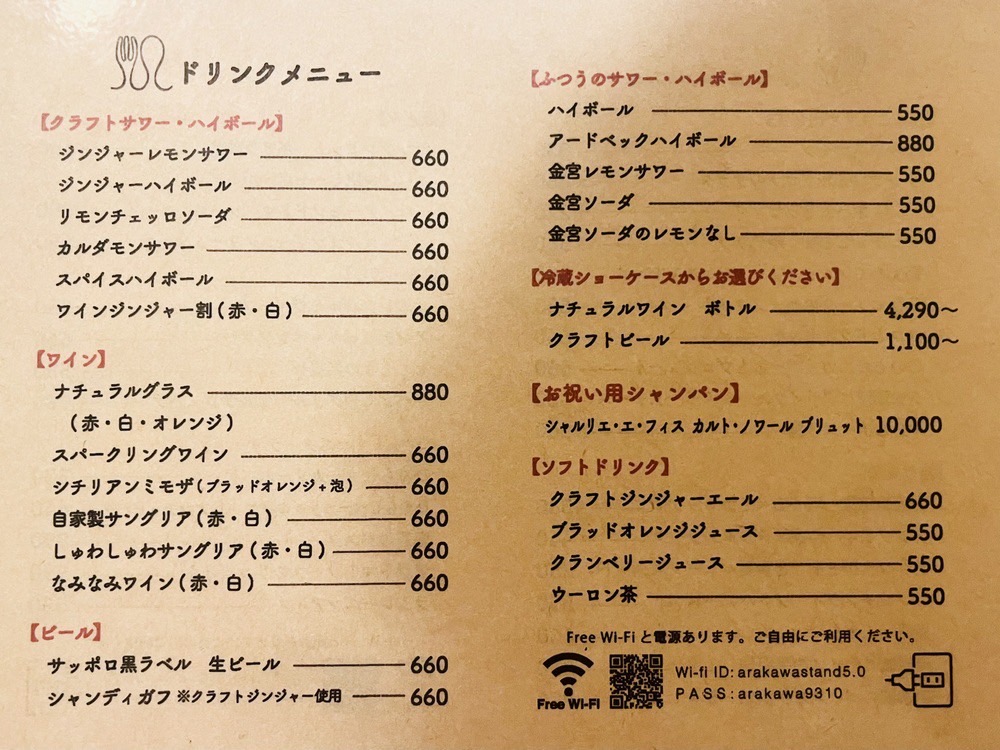 ドリンクメニュー
【クラフトサワー・ハイボール】
ジンジャーレモンサワー 660
ジンジャーハイボール 660
リモンチェッロソーダ 660
カルダモンサワー 660
スパイスハイボール 660
ワインジンジャー割(赤・白) 660
【ワイン】
ナチュラルグラス 880
(赤・白・オレンジ)
スパークリングワイン 660
シチリアンミモザ(ブラッドオレンジ+泡) 660
自家製サングリア(赤・白) 660
しゅわしゅわサングリア(赤・白) 660
なみなみワイン(赤・白) 660
【ビール】
サッポロ黒ラベル 生ビール 660
シャンディガフ ※クラフトジンジャー使用 660
【ふつうのサワー・ハイボール】
ハイボール 550
アードベックハイボール 880
金宮レモンサワー 550
金宮ソーダ 550
金宮ソーダのレモンなし 550
【冷蔵ショーケースからお選びください】
ナチュラルワイン ボトル 4,290〜
クラフトビール 1,100〜
【お祝い用シャンパン】
シャルリエ・エ・フィス カルト・ノワール ブリュット 10,000
【ソフトドリンク】
クラフトジンジャーエール 660
ブラッドオレンジジュース 550
クランベリージュース 550
ウーロン茶 550
Free Wi-Fi と電源あります。ご自由にご利用ください。
Free Wi-Fi
Wi-fi ID: arakawastand5.0
PASS: arakawa9310